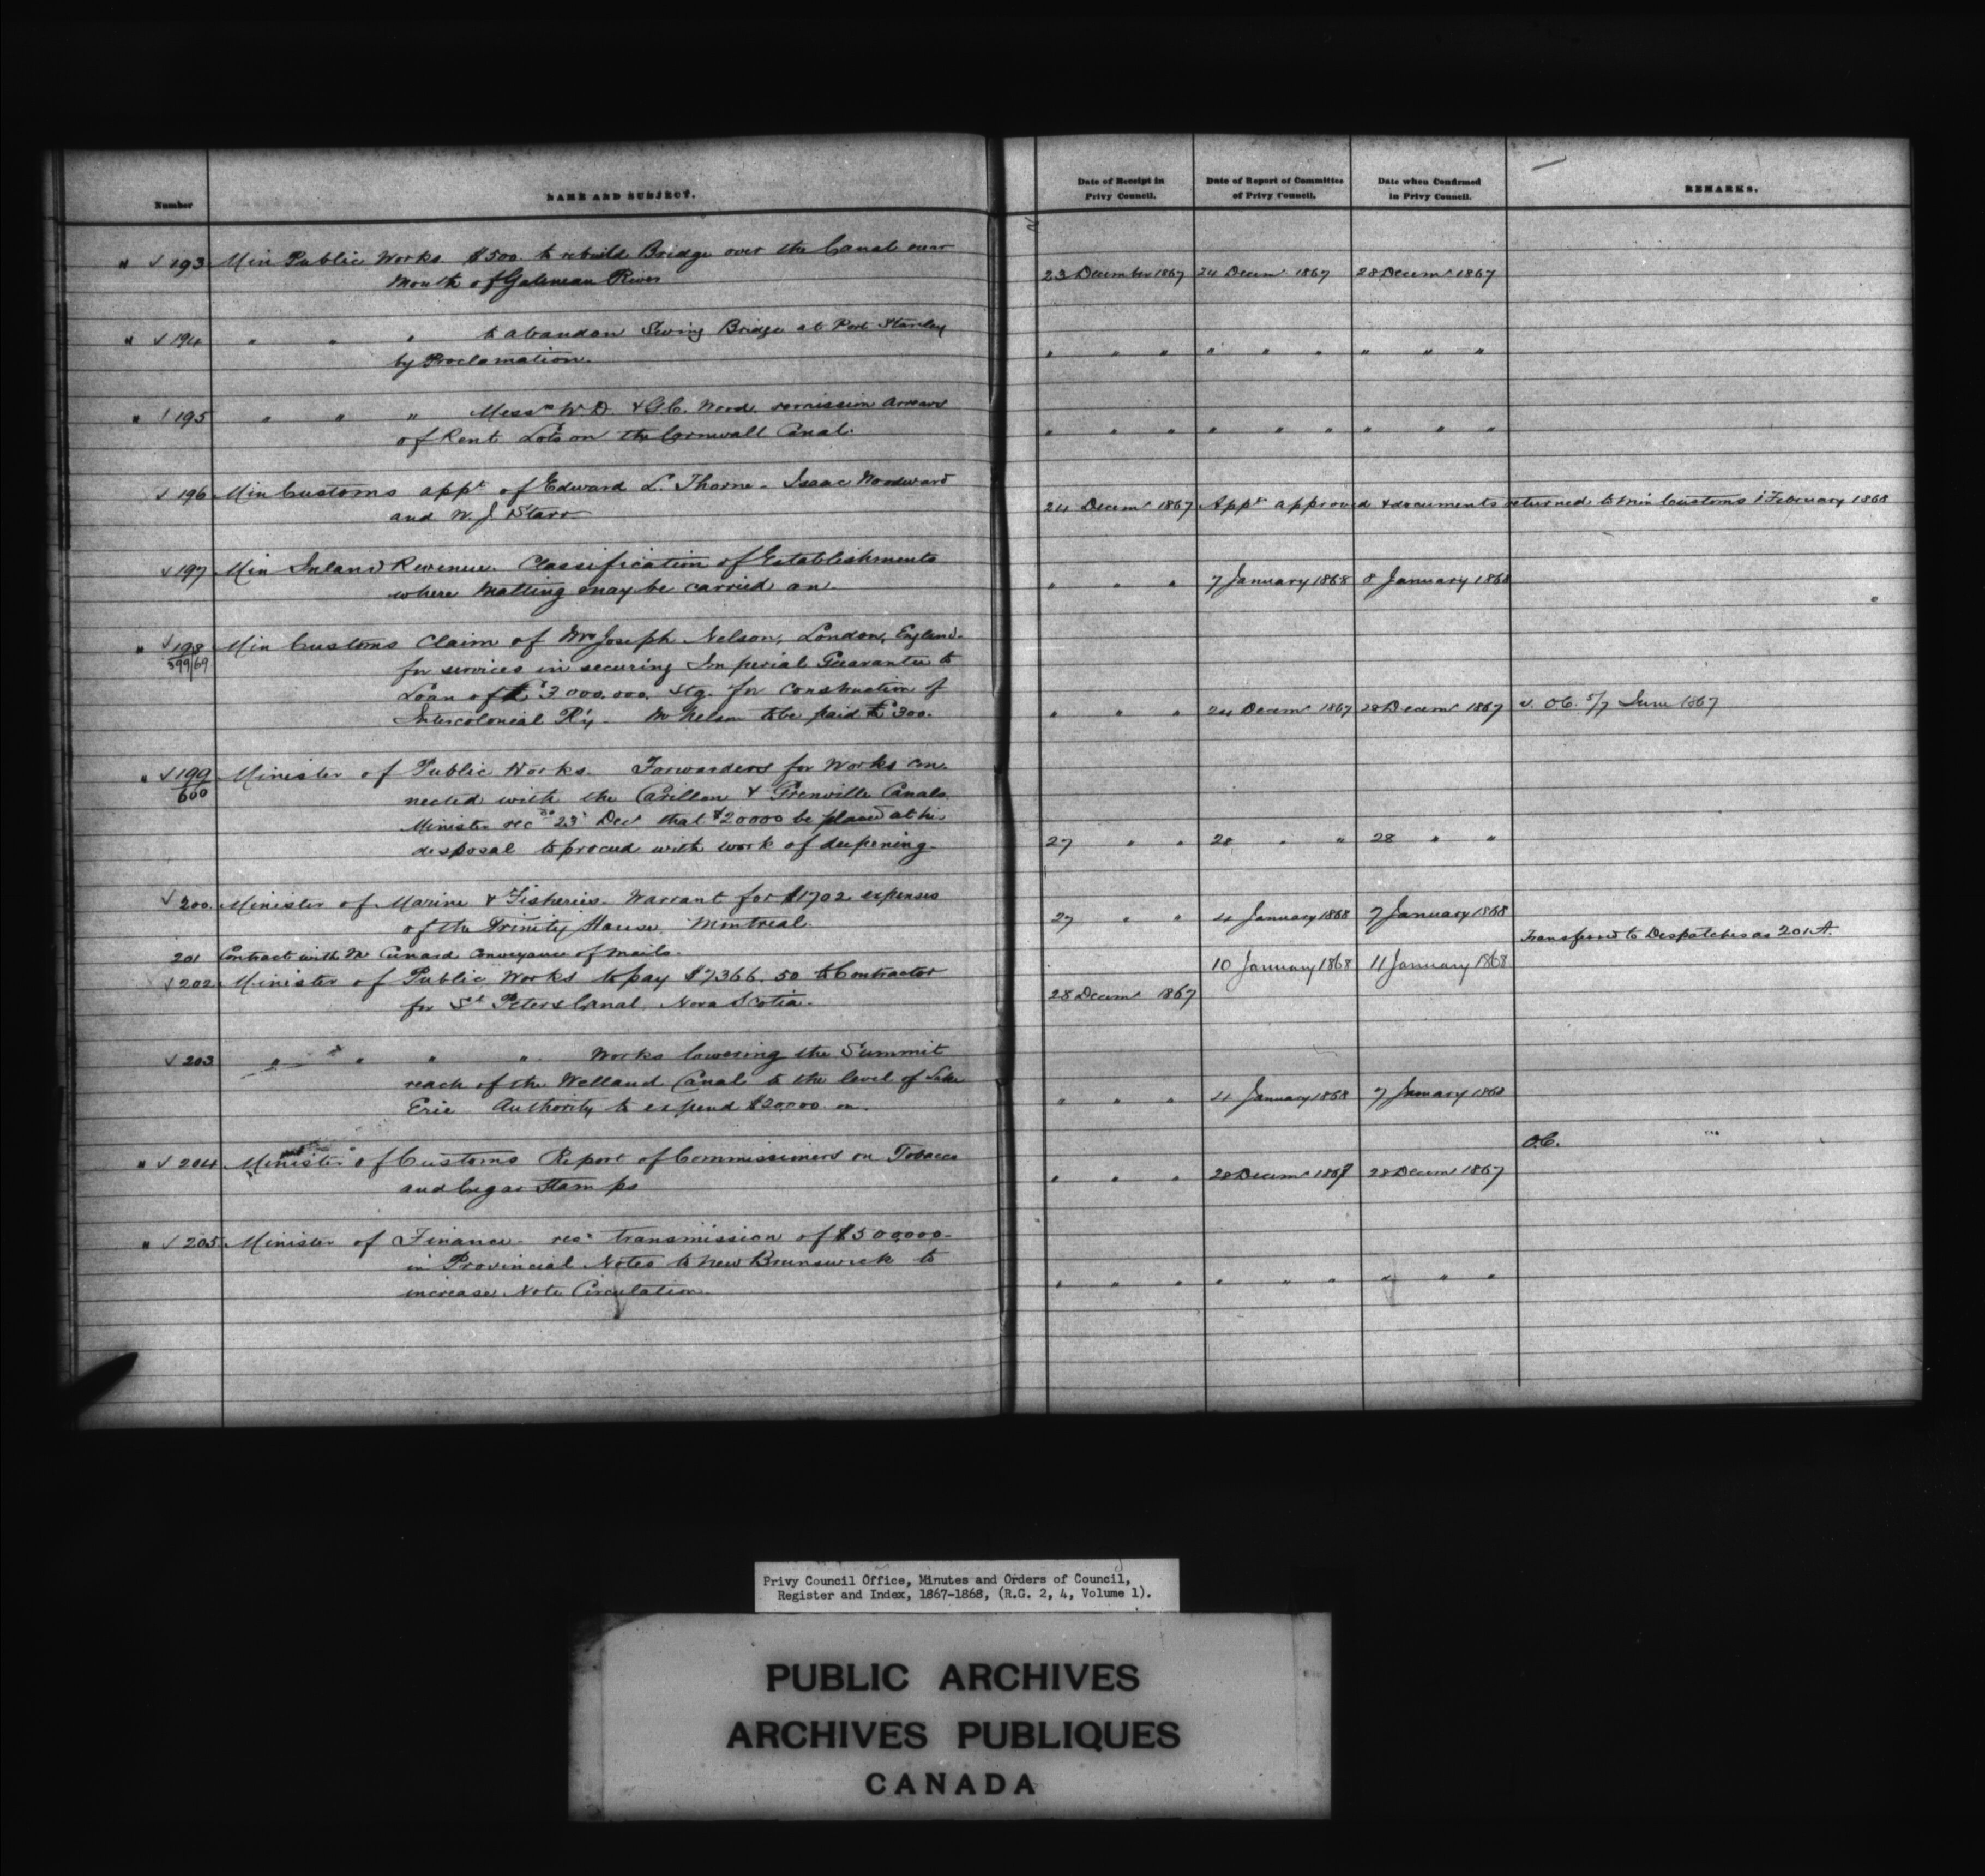 Number NAME AND SUBJECT. Date of Receipt in Privy Council. Date of Report of Committee of Privy Council. Date when Confirmed in Privy Council. REMARKS.
" √ 193 Min Public Works $500. to rebuild Bridge over the Canal near
Mouth of Gatineau River 23 December 1867 24 Decemr 1867 28 Decemr 1867
" √ 194 " " " to abandon Swing Bridge at Port Stanley
by Proclamation. " " " " " " " " "
" √ 195 " " " Messrs W. D. & G. C. Wood. remission arrears
of Rent Lots on the Cornwall Canal. " " " " " " " " "
√ 196 Min Customs appt of Edward L. Thorne - Isaac Woodward
and W. J. Starr 24 Decemr 1867 Appt approved & documents returned to Min Customs 1 February 1868
√ 197 Min Inland Revenue. Classification of Establishments
where Malting may be carried on. " " " 7 January 1868 8 January 1868
" √ 198 Min Customs Claim of Mr Joseph Nelson, London, England.
599/69 for services in securing Imperial Guarantee to
Loan of £3000.000. Stg. for Construction of
Intercolonial R'y. - Mr Nelson to be paid £300. " " " 24 Decemr 1867 28 Decemr 1867 v. O.C. 5/7 June 1867
" √ 199 Minister of Public Works. Forwarders for Works con-
600 nected with the Carillon & Grenville Canals.
Minister recds 23 Decr that $20000 be placed at his
disposal to proceed with work of deepening. 27 " " 28 " " 28 " "
√ 200. Minister of Marine & Fisheries. Warrant for $1702. expenses
of the Trinity House. Montreal. 27 " " 4 January 1868 7 January 1868
201 Contract with Mr Cunard Conveyance of Mails. Transferred to Despatches as 201A.
√ 202 Minister of Public Works to pay $7366.50 to Contractor 10 January 1868 11 January 1868
for St Peters Canal, Nova Scotia. 28 Decemr 1867
√ 203 " " " " Works lowering the Summit
reach of the Welland Canal to the level of Lake
Erie Authority to expend $20000 on. " " " 4 January 1868 7 January 1868
O.C.
" √ 204 Minister of Customs Report of Commissioners on Tobacco
and Cigar Stamps " " " 28 Decemr 1867 28 Decemr 1867
" √ 205 Minister of Finance - recs transmission of $500000-
in Provincial Notes to New Brunswick to
increase Note Circulation. " " " " " " " " "
Privy Council Office, Minutes and Orders of Council,
Register and Index, 1867-1868, (R.G. 2, 4, Volume 1).
PUBLIC ARCHIVES
ARCHIVES PUBLIQUES
CANADA